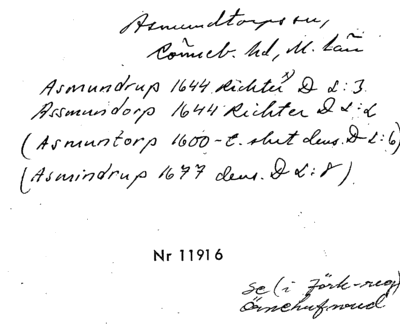 Asmundtorps sn,
Rönneb. hd, M. län
Asmundrup 1644 Richter D L:3
Assmundorp 1644 Richter D L:2
(Asmuntorp 1600-t. slut dens. D L:6)
(Asmindrup 1677 dens. D L:8)
Nr 11916
se (i förk-reg)